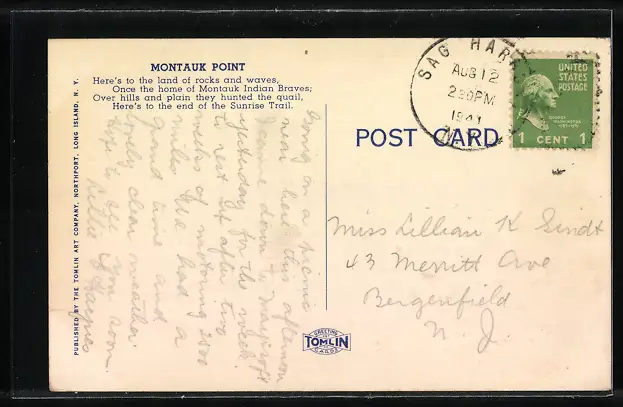 MONTAUK POINT
Here's to the land of rocks and waves,
Once the home of Montauk Indian Braves;
Over hills and plain they hunted the quail,
Here's to the end of the Sunrise Trail.
PUBLISHED BY THE TOMLIN ART COMPANY, NORTHPORT, LONG ISLAND, N. Y.
on a picnic
near here this afternoon
down to
yesterday for the week
to rest up after two
weeks of motoring 2500
miles. We had a
grand time and
lovely clear weather.
Hope to see you soon.
Lillie
POST CARD
SAG HARBOR
AUG 12
2 30 PM
1941
N.Y.
UNITED
STATES
POSTAGE
GEORGE
WASHINGTON
1789-1797
1 CENT 1
Miss Lillian K Sindt
43 Merritt Ave
Bergenfield
N. J.
GREETING
TOMLIN
CARDS